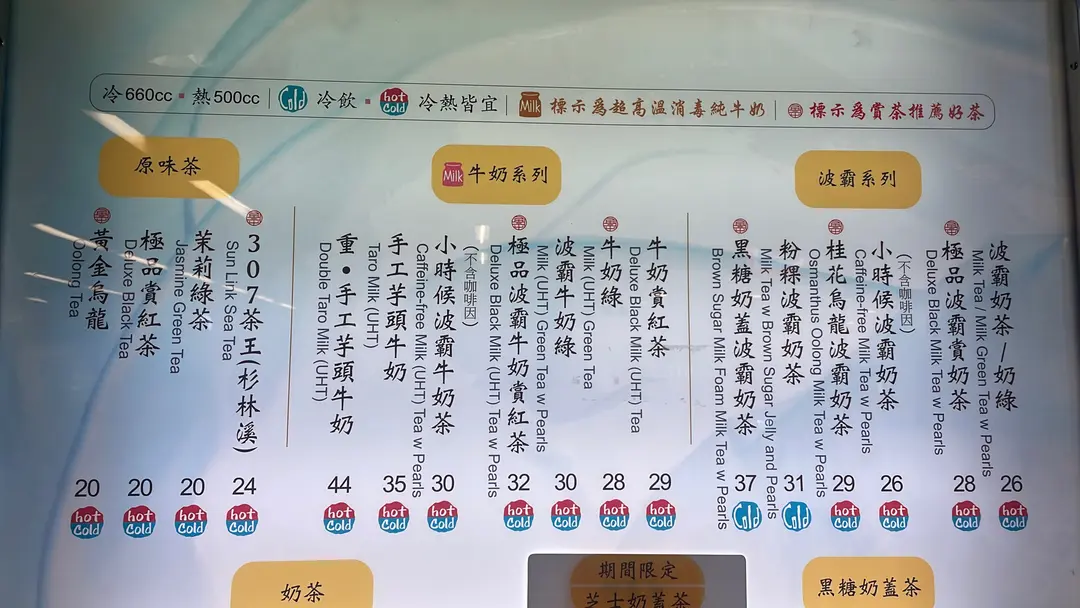 冷660cc▪熱500cc | Cold 冷飲▪hot cold 冷熱皆宜 | Milk 標示為超高溫消毒純牛奶 | 賞 標示為賞茶推薦好茶
波霸系列
波霸奶茶/奶綠
Milk Tea / Milk Green Tea w Pearls
26
hot cold
極品波霸賞奶茶
Deluxe Black Milk Tea w Pearls
28
hot cold
小時候波霸奶茶
(不含咖啡因)
Caffeine-free Milk Tea w Pearls
26
hot cold
桂花烏龍波霸奶茶
Osmanthus Oolong Milk Tea w Pearls
29
hot cold
粉粿波霸奶茶
Milk Tea w Brown Sugar Jelly and Pearls
31
Cold
黑糖奶蓋波霸奶茶
Brown Sugar Milk Foam Milk Tea w Pearls
37
Cold
Milk 牛奶系列
牛奶賞紅茶
Deluxe Black Milk (UHT) Tea
29
hot cold
牛奶綠
Milk (UHT) Green Tea
28
hot cold
波霸牛奶綠
Milk (UHT) Green Tea w Pearls
30
hot cold
極品波霸牛奶賞紅茶
Deluxe Black Milk (UHT) Tea w Pearls
32
hot cold
小時候波霸牛奶茶
(不含咖啡因)
Caffeine-free Milk (UHT) Tea w Pearls
30
hot cold
手工芋頭牛奶
Taro Milk (UHT)
35
hot cold
重•手工芋頭牛奶
Double Taro Milk (UHT)
44
hot cold
原味茶
307茶王(杉林溪)
Sun Link Sea Tea
24
hot cold
茉莉綠茶
Jasmine Green Tea
20
hot cold
極品賞紅茶
Deluxe Black Tea
20
hot cold
黃金烏龍
Oolong Tea
20
hot cold
奶茶
期間限定
芝士奶蓋茶
黑糖奶蓋茶